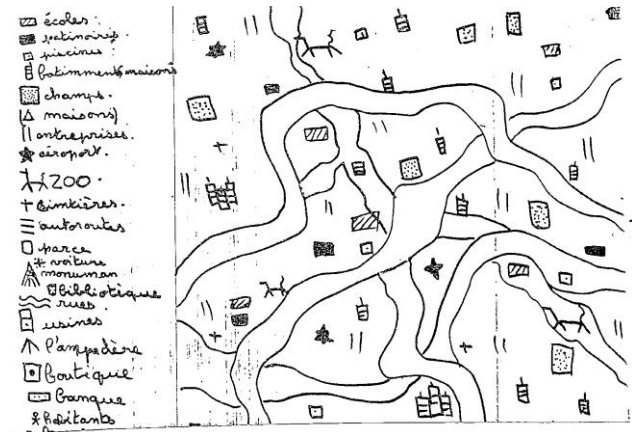 écoles.
patinoires.
piscines.
batimments maisons
champs.
maisons
entreprises.
aéroport.
ZOO.
cimtières.
autoroutes
parce
voiture
monuman
bibliotèque
rues
usines
l'ampadère
boutique
banque
habitants